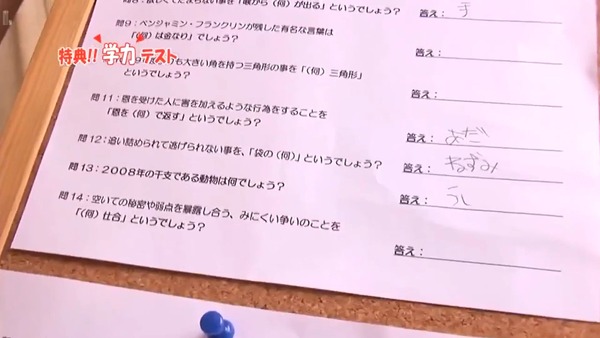 問8：欲しくてたまらない事を「喉から（何）が出る」というでしょう？
答え： 手
問9：ベンジャミン・フランクリンが残した有名な言葉は
「（何）は金なり」でしょう？
答え：
特典!! 学力テスト
も大きい角を持つ三角形の事を「（何）三角形」
というでしょう？
答え：
問11：恩を受けた人に害を加えるような行為をすることを
「恩を（何）で返す」というでしょう？
答え： あだ
問12：追い詰められて逃げられない事を、「袋の（何）」というでしょう？
答え： ねずみ
問13：2008年の干支である動物は何でしょう？
答え： うし
問14：空いての秘密や弱点を暴露し合う、みにくい争いのことを
「（何）仕合」というでしょう？
答え：